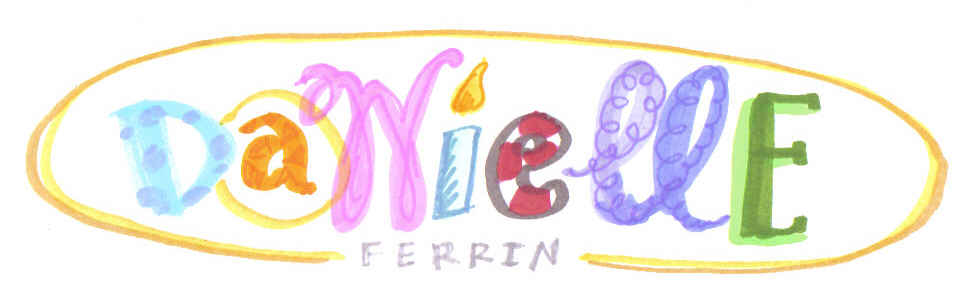 DaNiellE
FERRIN